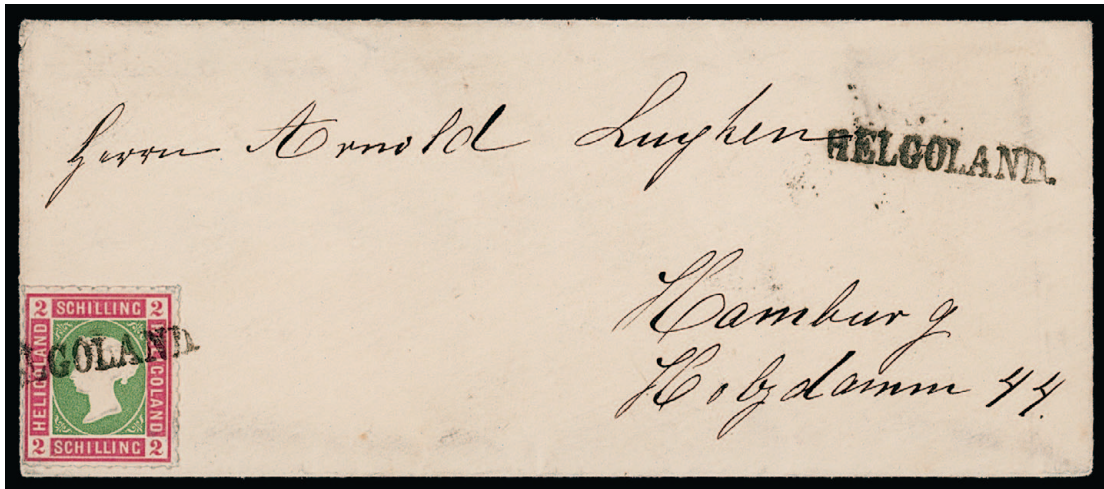 Herrn Arnold Luyken
HELGOLAND.
Hamburg
Holzdamm 44.
2 SCHILLING 2
HELIGOLAND
HELIGOLAND
LGOLAND.
2 SCHILLING 2